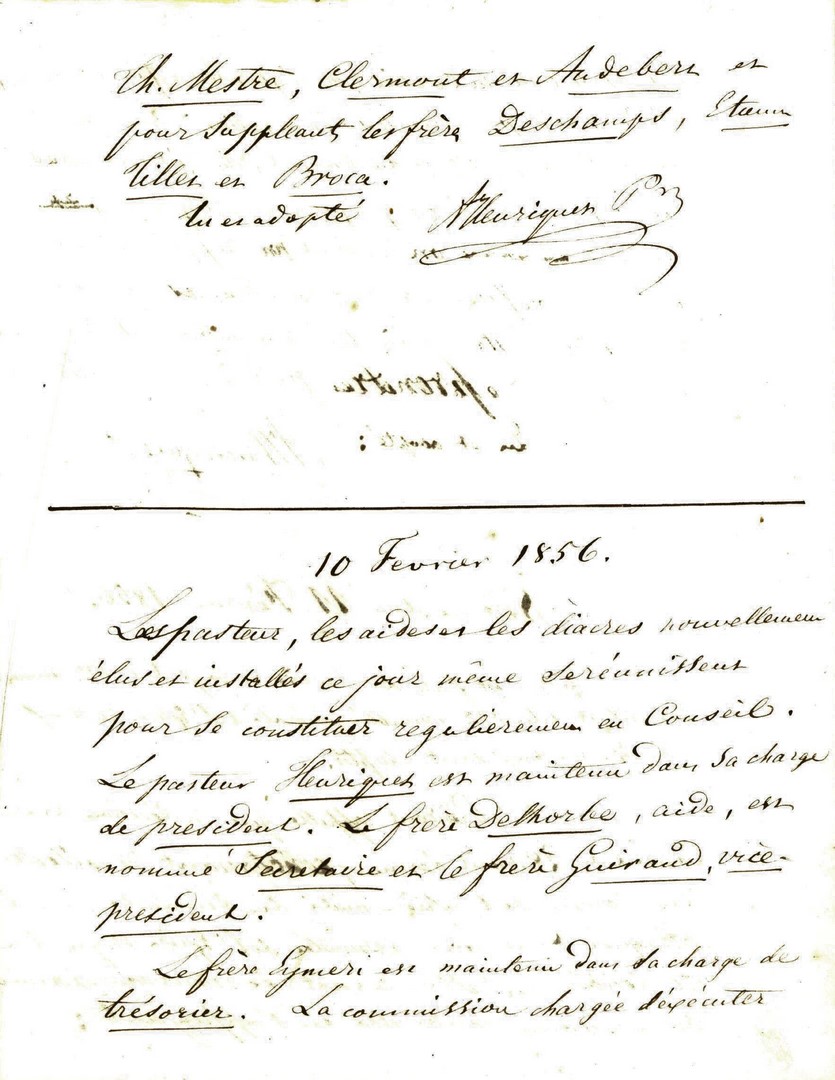 Th. Mestre, Clermont et Audebert et
pour Suppleants les frères Deschamps, Etienne
Tilles et Broca.
Lu et adopté : AHenriques Pr
10 Fevrier 1856.
Les pasteur, les aides et les diacres nouvellement
élus et installés ce jour même se réunissent
pour se constituer regulierement en Conseil.
Le pasteur Henriques est maintenu dans sa charge
de president. Le frère Delhorbe, aide, est
nommé Secretaire et le frère Guiraud, vice-
president.
Le frère Eymeri est maintenu dans sa charge de
trésorier. La commission chargée d'éxécuter